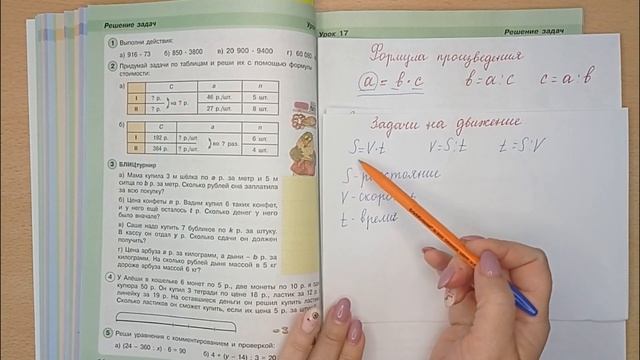 Решение задач
Урок 17
Решение задач
1 Выполни действия:
а) 916 · 73 б) 850 · 3800 в) 20 900 · 9400 г) 60 080
2 Придумай задачи по таблицам и реши их с помощью формулы
стоимости:
а)
С а n
I ? р. 46 р./шт. 5 шт.
на ? р.
II ? р. 27 р./шт. 8 шт.
б)
С а n
I 192 р. ? р./шт. 6 шт.
во ? раз.
II 384 р. ? р./шт. 4 шт.
3 БЛИЦтурнир
а) Мама купила 3 м шёлка по а р. за метр и 5 м
ситца по b р. за метр. Сколько рублей она заплатила
за всю покупку?
б) Цена конфеты а р. Вадим купил 6 таких конфет,
и у него ещё осталось t р. Сколько денег у него
было вначале?
в) Саше надо купить 7 бубликов по k р. за штуку.
В кассу он отдал y р. Сколько сдачи он должен
получить?
г) Цена арбуза а р. за килограмм, а дыни – b р. за
килограмм. На сколько рублей дыня массой в 5 кг
дороже арбуза массой 6 кг?
4 У Алёши в кошельке 6 монет по 5 р., две монеты по 10 р. и одна
купюра 50 р. Он купил 3 тетради по цене 18 р., ластик за 12 р.
линейку за 19 р. На оставшиеся деньги он решил купить
Сколько ластиков он сможет купить, если их цена 5 р. за
5 Реши уравнения с комментированием и проверкой:
а) (24 – 360 : x) · 6 = 90 б) 4 + (y – 14) : 3 = 20
Формула произведения
a = b · c b = a : c c = a : b
Задачи на движение
S = V · t V = S : t t = S : V
S - расстояние
V - скорость
t - время